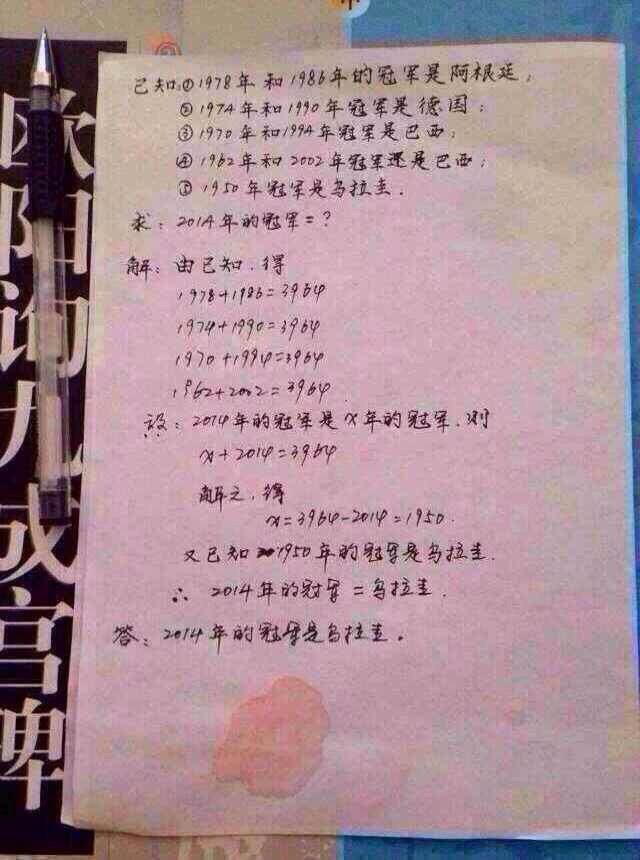 欧阳询九成宫碑
已知:①1978年和1986年的冠军是阿根廷;
②1974年和1990年冠军是德国;
③1970年和1994年冠军是巴西;
④1962年和2002年冠军还是巴西;
⑤1950年冠军是乌拉圭.
求:2014年的冠军=?
解:由已知,得
1978+1986=3964
1974+1990=3964
1970+1994=3964
1962+2002=3964
設:2014年的冠军是x年的冠军,则
x+2014=3964
解之,得
x=3964-2014=1950.
又已知1950年的冠军是乌拉圭.
∴ 2014年的冠军=乌拉圭.
答:2014年的冠军是乌拉圭。